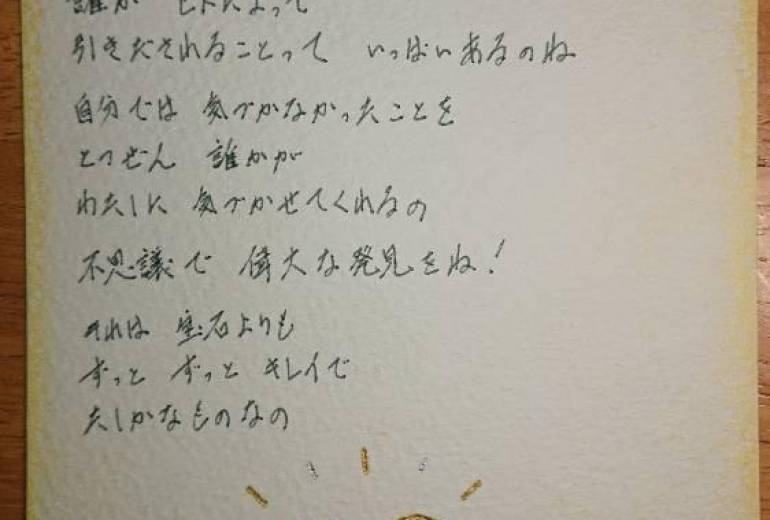 誰か ヒトによって
引きだされることって いっぱいあるのね
自分では 気づかなかったことを
とつぜん 誰かが
わたしに 気づかせてくれるの
不思議で 偉大な発見をね!
それは 宝石よりも
ずっと ずっと キレイで
たしかなものなの